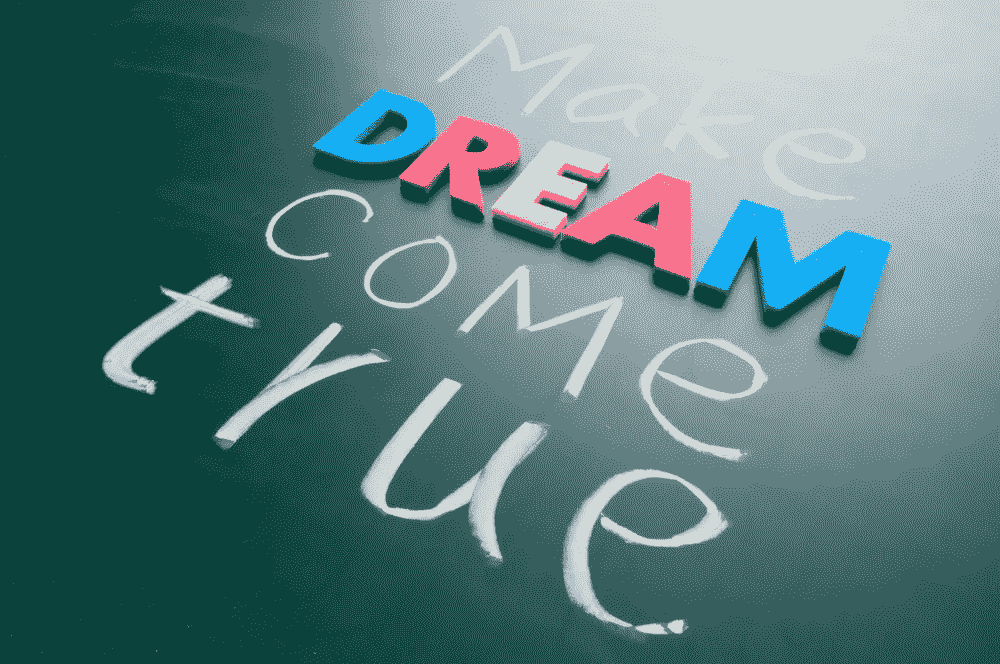 Make
DREAM
come
true